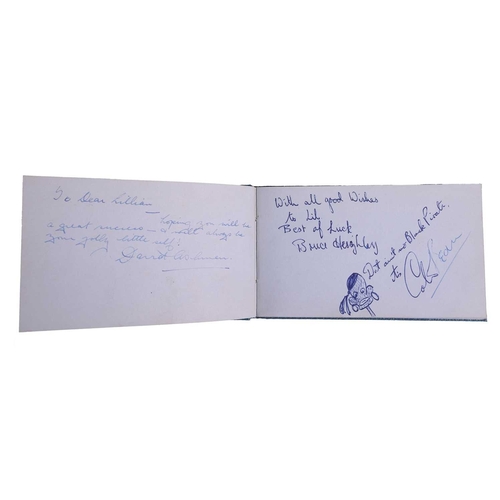 To Dear Lillian
Hoping you will be
a great success will always be
your jolly little self!
With all good Wishes
to Lil
Best of Luck
Bruce Heighley
Dat aint no Black Pirate,
its